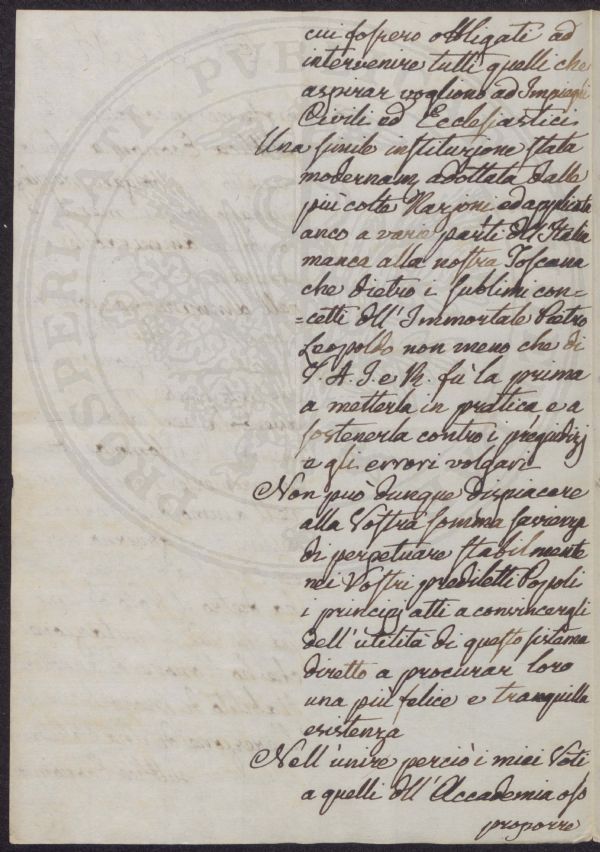 cui fossero obbligati ad
intervenire tutti quelli che
aspirar vogliono ad Impieghi
Civili ed Ecclesiastici
Una simile instituzione stata
modernam. adottata dalle
più colte Nazioni ed applicata
anco a varie parti dell'Italia
manca alla nostra Toscana
che dietro i sublimi con=
=cetti dell'Immortale Pietro
Leopoldo non meno che di
V. A. I. e R. fù la prima
a metterla in pratica e a
sostenerla contro i pregiudizj
e gli errori volgari
Non può dunque dispiacere
alla Vostra somma saviezza
di perpetuare stabilmente
nei Vostri prediletti Popoli
i principj atti a convincergli
dell'utilità di questo sistema
diretto a procurar loro
una più felice e tranquilla
esistenza
Nell'unire perciò i miei Voti
a quelli dell'Accademia oso
proporre
PROSPERITATI PVB